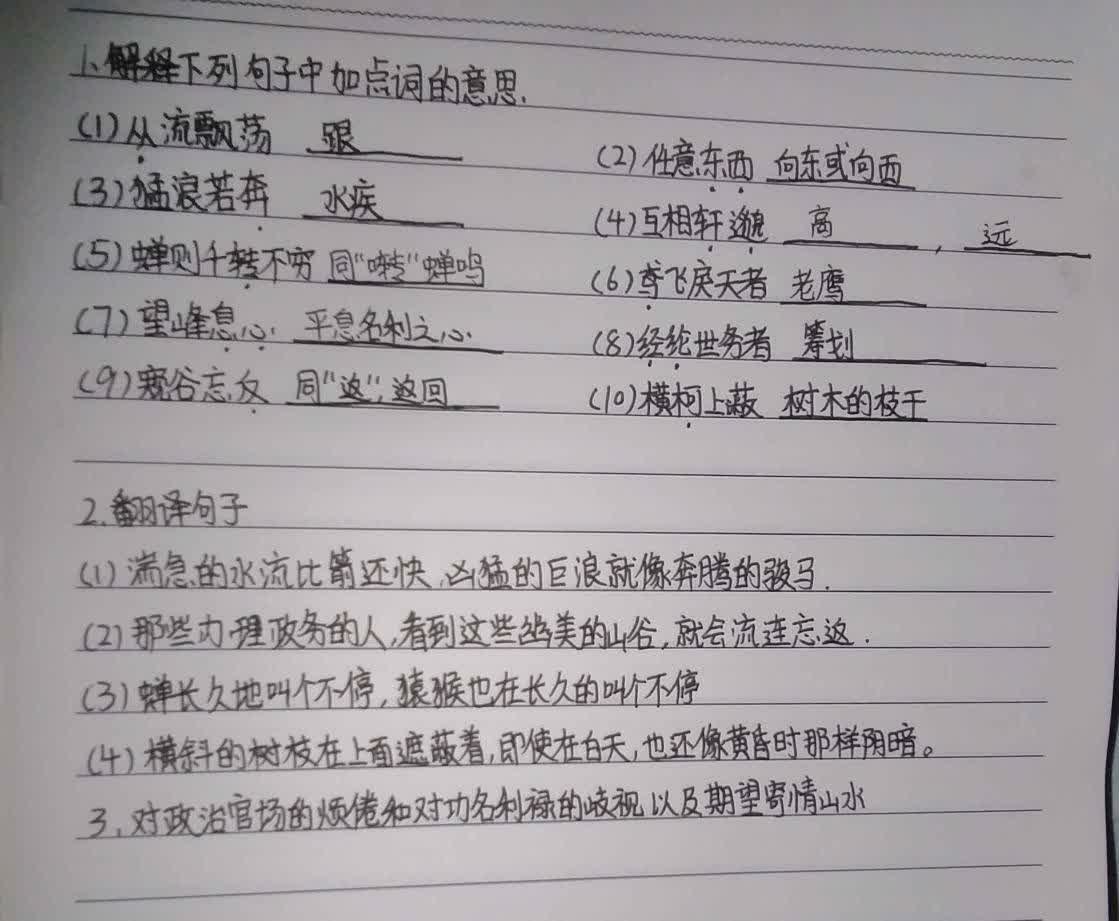 1、解释下列句子中加点词的意思.
(1)从流飘荡 跟
(2)任意东西 向东或向西
(3)猛浪若奔 水疾
(4)互相轩邈 高 , 远
(5)蝉则千转不穷 同"啭"蝉鸣
(6)鸢飞戾天者 老鹰
(7)望峰息心. 平息名利之心.
(8)经纶世务者 筹划
(9)窥谷忘反 同"返",返回
(10)横柯上蔽 树木的枝干
2.翻译句子
(1)湍急的水流比箭还快,凶猛的巨浪就像奔腾的骏马.
(2)那些办理政务的人,看到这些幽美的山谷,就会流连忘返.
(3)蝉长久地叫个不停,猿猴也在长久的叫个不停
(4)横斜的树枝在上面遮蔽着,即使在白天,也还像黄昏时那样阴暗。
3.对政治官场的烦倦和对功名利禄的岐视以及期望寄情山水